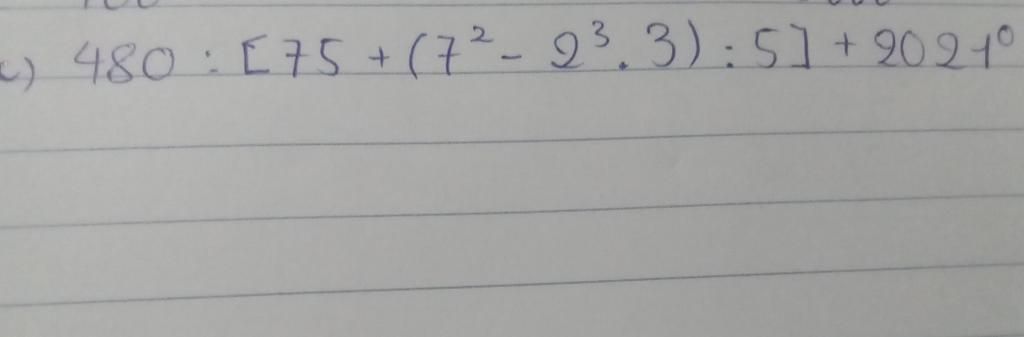 c) 480 : [75 + (7² - 2³ . 3) : 5] + 2021⁰